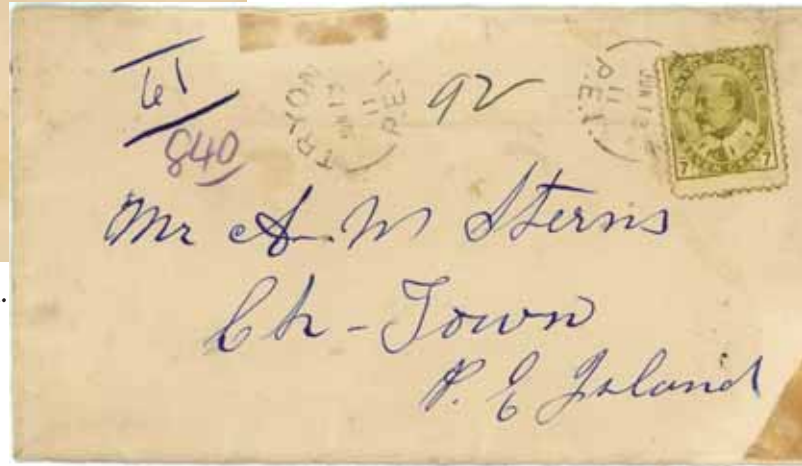 61
840
TRYON
JUN 13
11
P.E.I.
92
JUN 13
11
P.E.I.
7 7
Mr A. M Sterns
Ch-Town
P. E Island